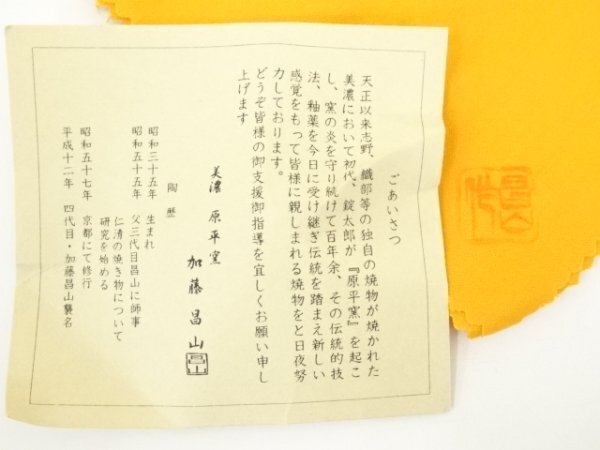 ごあいさつ
天正以来志野、織部等の独自の焼物が焼かれた
美濃において初代、錠太郎が『原平窯』を起こ
し、窯の炎を守り続けて百年余、その伝統的技
法、釉薬を今日に受け継ぎ伝統を踏まえ新しい
感覚をもって皆様に親しまれる焼物をと日夜努
力しております。
どうぞ皆様の御支援御指導を宜しくお願い申し
上げます
美濃 原平窯
加藤昌山
昌山
陶歴
昭和三十五年 生まれ
昭和五十五年 父三代目昌山に師事
仁清の焼き物について
研究を始める
昭和五十七年 京都にて修行
平成十二年 四代目・加藤昌山襲名